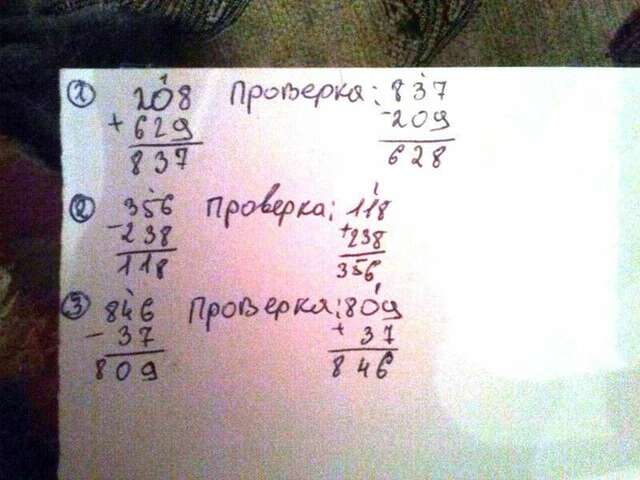 ① 208 Проверка: 837
+ 629 - 209
837 628
② 356 Проверка: 118
- 238 + 238
118 356
③ 846 Проверка: 809
- 37 + 37
809 846